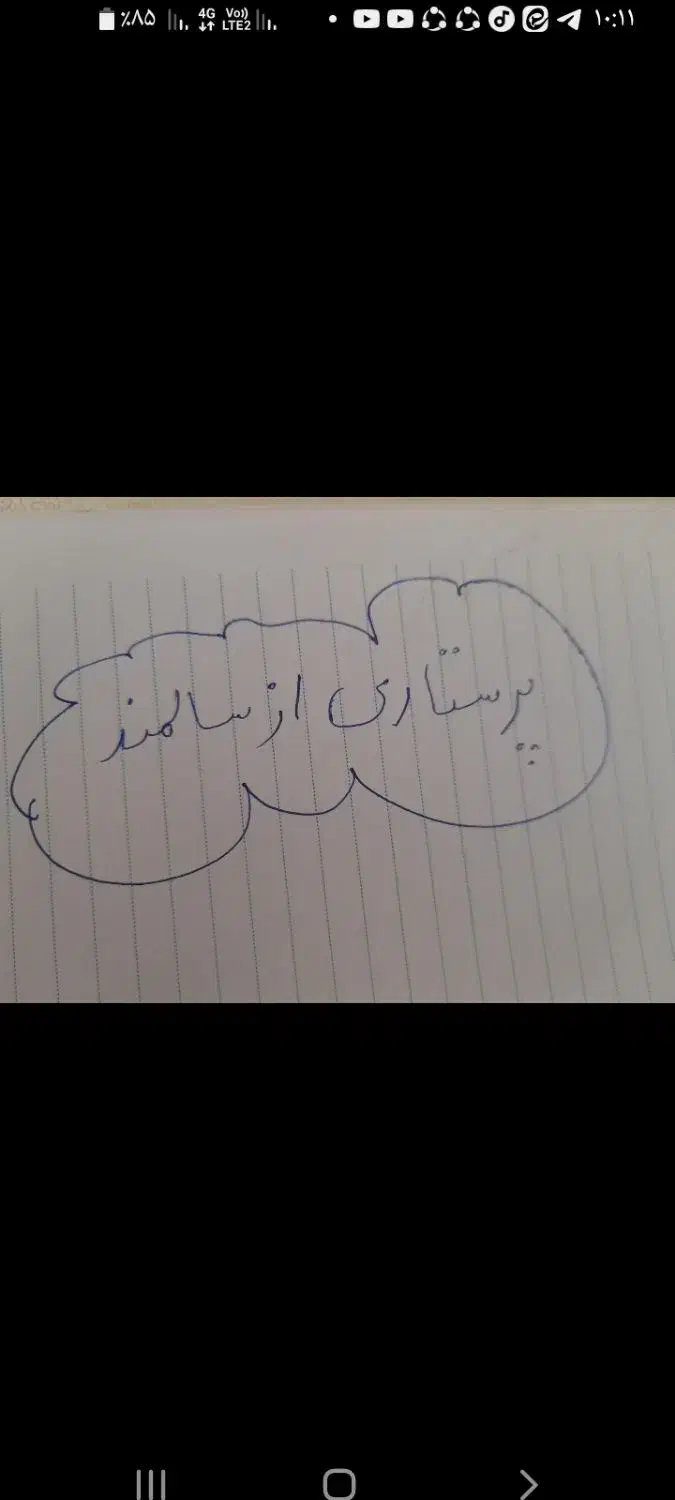 ٪۸۵ 4G Vo)) LTE2 ۱۰:۱۱
پرستاری از سالمند